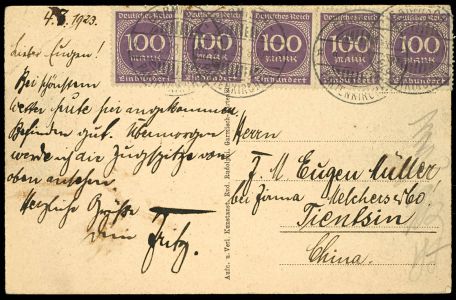 4.8.1923.
Lieber Eugen!
Bei schönstem
Wetter heute hier angekommen.
Befinden gut. Übermorgen
werde ich die Zugspitze von
oben ansehen
Herzliche Grüße
Dein Fritz.
Deutsches Reich Deutsches Reich Deutsches Reich Deutsches Reich Deutsches Reich
100 100 100 100 100
MARK MARK MARK MARK MARK
Einhundert Einhundert Einhundert Einhundert Einhundert
Herrn
Eugen Müller
bei Firma Melchers & Co.
Tientsin
China.
Aufn. u. Verl. Kunstanst. Rud. Rudolphi, Garmisch-Partenkirchen